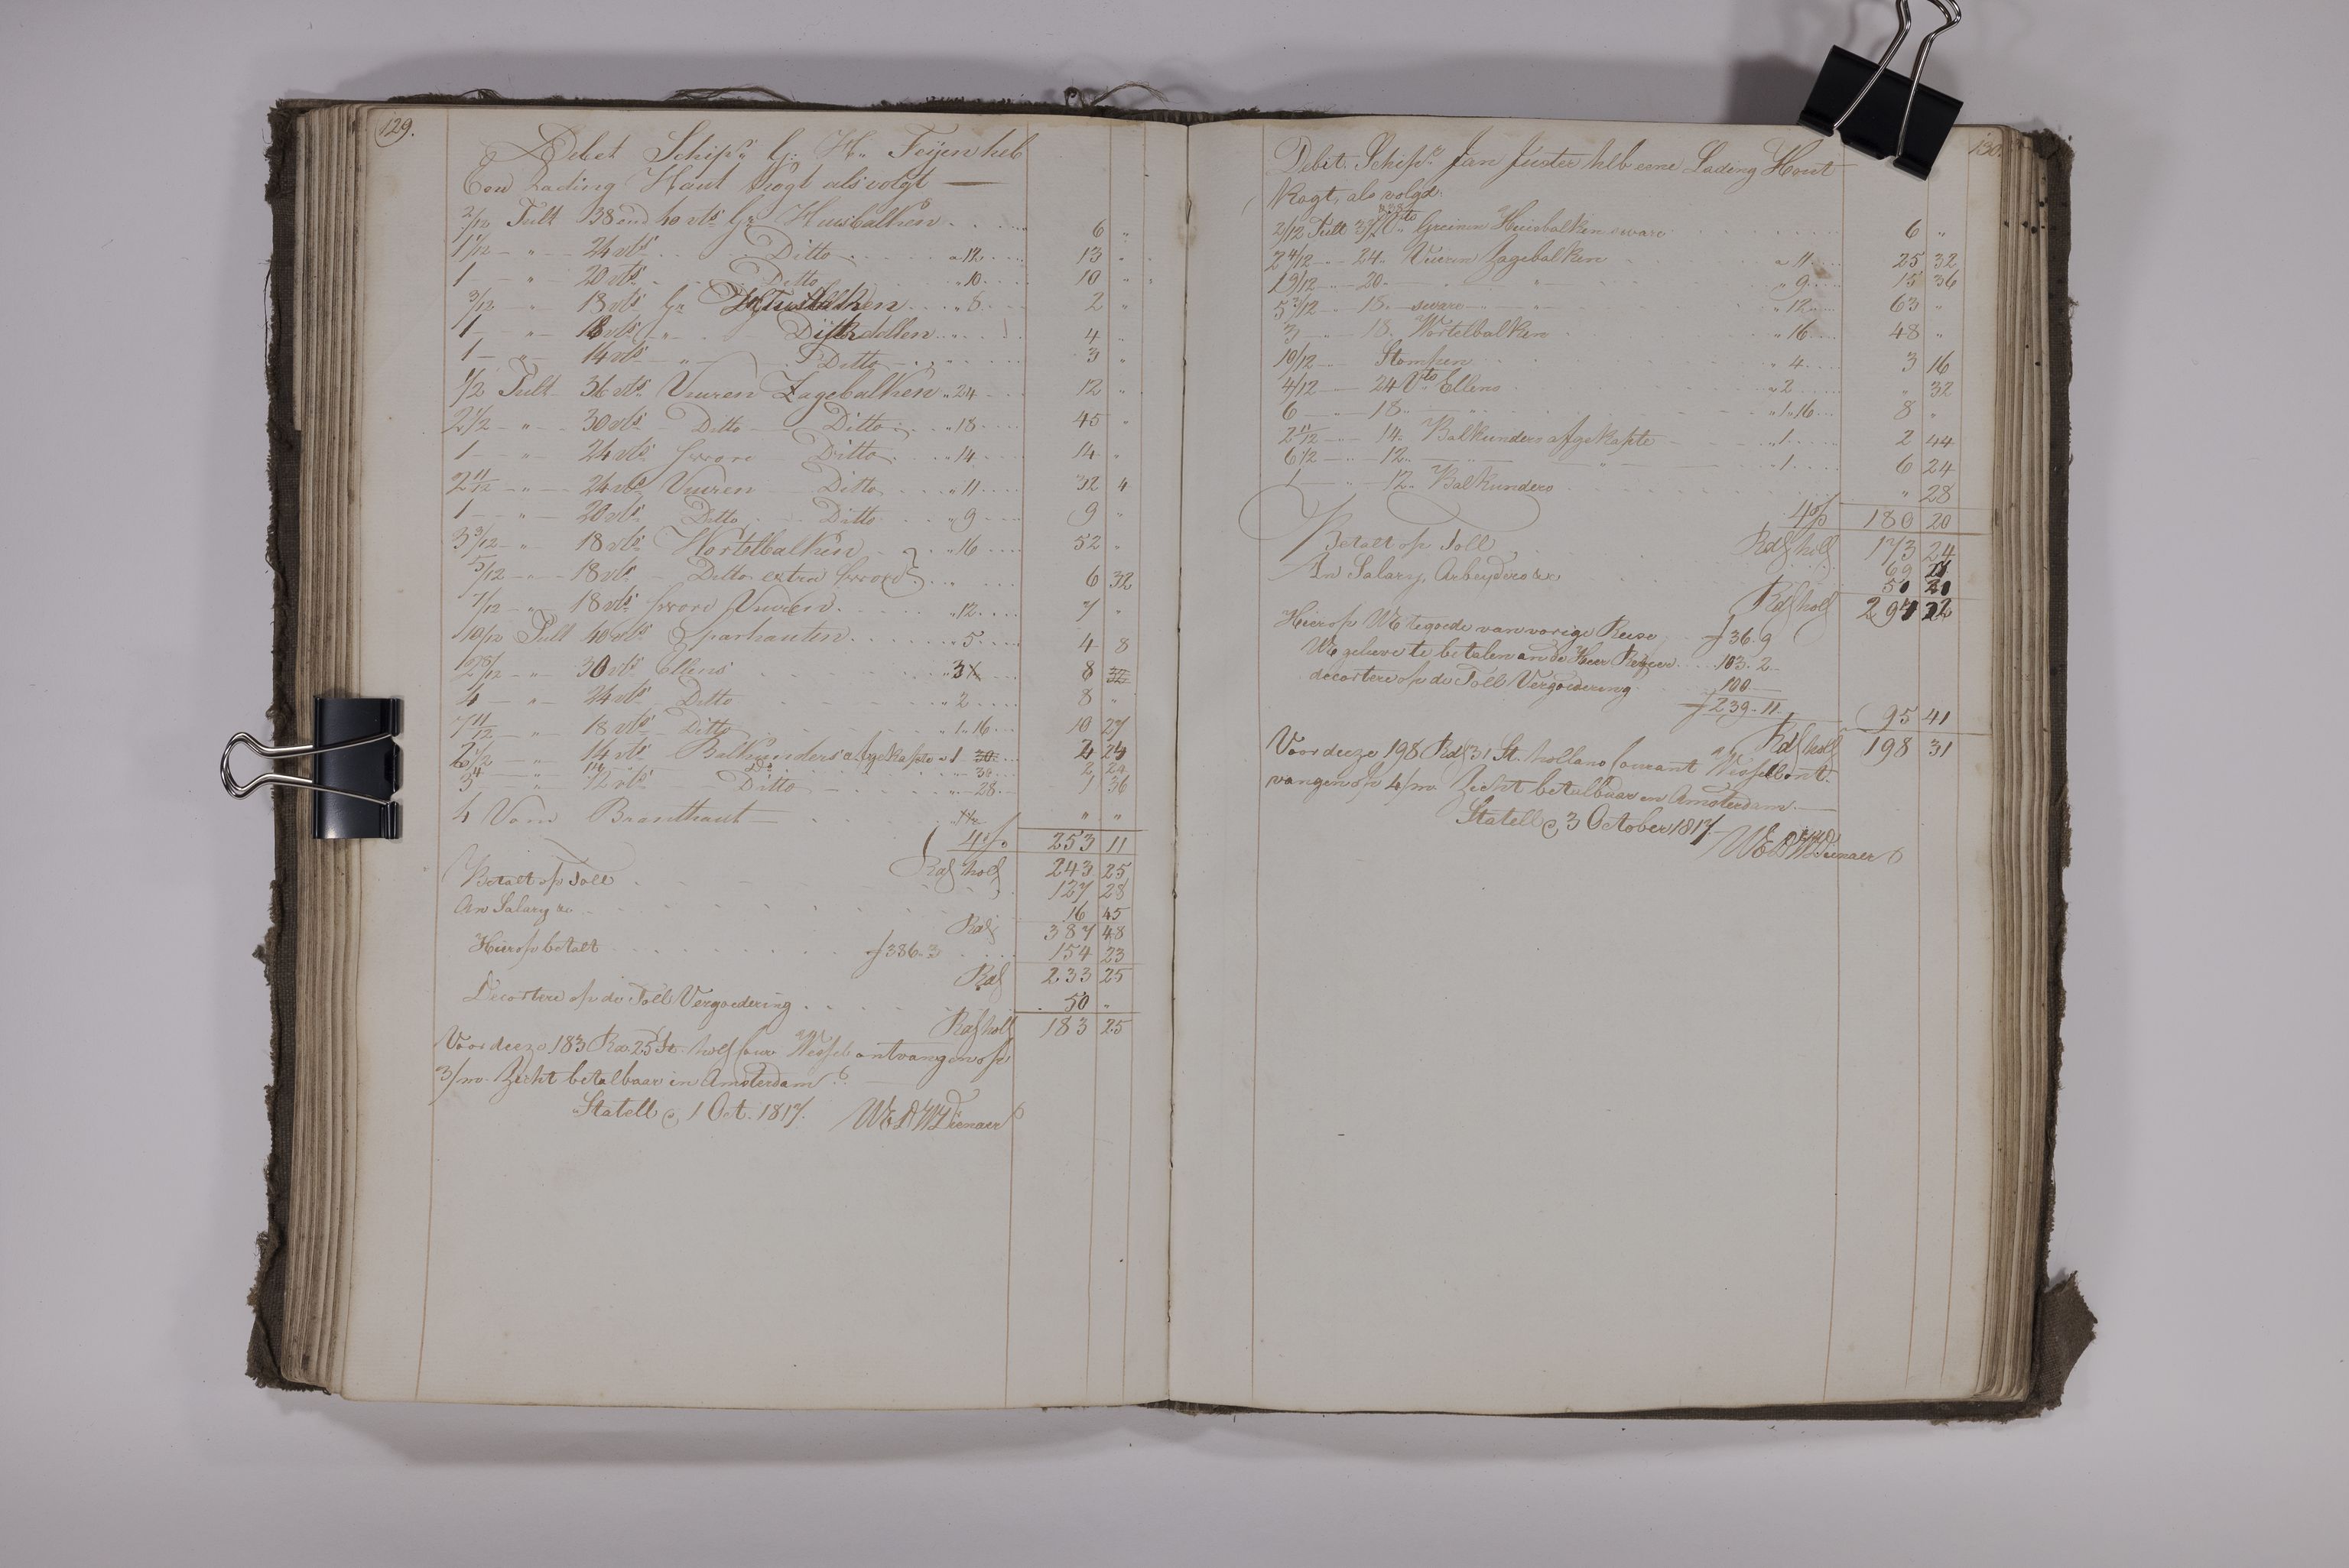 129.
Debet Schipr. G. H. Feijen heb
Een Lading Haut kogt als volgt —
2/12 Tult 38 end 40 vts. Gr. Huusbalken . . . . 6 "
1 1/12 " 24 vts. . . Ditto . . . a 12 . . . 13 "
1 — " 20 vts. Ditto . . . " 10 . . . 10 "
3/12 " 18 vts. Gr. . . . " 8 . . . 2 "
1 — " 18 vts. " . . . 4 "
1 — " 14 vts. " Ditto . . . 3 "
1/2 Tult 36 vts. Vuuren Zagebalken " 24 . . . 12 "
2 1/2 — " 30 vts. Ditto Ditto . . . " 18 . . . 45 "
1 — " 24 vts. swore Ditto . . . " 14 . . . 14 "
2 11/12 — " 24 vts. Vuuren Ditto . . . " 11 . . . 32 4
1 — " 20 vts. Ditto Ditto . . . " 9 . . . 9 "
3 3/12 — " 18 vts. Wortelbalken . . . " 16 . . . 52 "
5/12 — " 18 vts. Ditto extra swore . . . 6 32
7/12 — " 18 vts. swore Vuuren . . . " 12 . . . 7 "
10/12 Tult 40 vts. Sparhauten . . . " 5 . . . 4 8
30 vts. Ellens . . . " 3 . . . 8
4 — " 24 vts. Ditto . . . " 2 . . . 8 "
7 11/12 — " 18 vts. Ditto . . . " 1 " 16 . . . 10 27
14 vts. Balkunders afgekapte " 1 30 . . . 2 24
30 . . . 2 24
3 — " 12 vts. Ditto . . . " 28 . . . 1 36
4 Vam Brandhaut — . . . " "
4 p/o 253 11
Rds holl 243 25
Betalt op Toll . . . 127 28
An Salary &c. . . . 16 45
Rds 387 48
Hierop betalt . . . f 386 " 3 . . . 154 23
Rds 233 25
Decortere op de Toll Vergoedering . . . 50 "
Rds holl 183 25
Voor deeze 183 Rds. 25 St. holl Cour. Wissel ontvangen op
3/m Zicht betalbaar in Amsterdam
Statelle, 1 Oct. 1817. WE DW Dienaer
130.
Debit. Schipr. Jan Juster heb eene Lading Hout
kogt, als volgd.
2/12 Tult Vto. Greinen Huisbalken sware . . . 6 "
2 4/12 — " 24 " Vuuren Zagebalken a 11 . . . 25 32
1 9/12 — " 20 — " " " 9 . . . 15 36
5 3/12 — " 18 — sware " " 12 . . . 63 "
3 — " 18 " Wortelbalken " 16 . . . 48 "
10/12 — Stompen . . . " 4 . . . 3 16
4/12 — 24 Vto Ellens . . . " 2 . . . " 32
6 — " 18 " — " . . . " 1 " 16 . . . 8 "
2 11/12 — " 14 " Balkunders afgekapte — " 1 . . . 2 44
6 1/2 — " 12 " — " — " 1 . . . 6 24
1 — " 12 " Balkunders . . . " 28
4 p/o 180 20
Rds holl 173 24
Betalt op Toll . . . 69
In Salary, Arbeyders &c . . . 50 20
Rds holl 294 22
Hierop WE te goede van vorige Reise f 36 " 9
WE gelieve te betalen an de Heer . . . 103 " 2 —
decortere op de Toll Vergoedering . . . 100 —
f 239 " 11 — 95 41
Rds holl 198 31
Voor deeze 198 Rds 31 St. hollans Courant Wissel ont-
vangen op 4/m Zicht betalbaar in Amsterdam —
Statelle, 3 October 1817. WE DW Dienaer